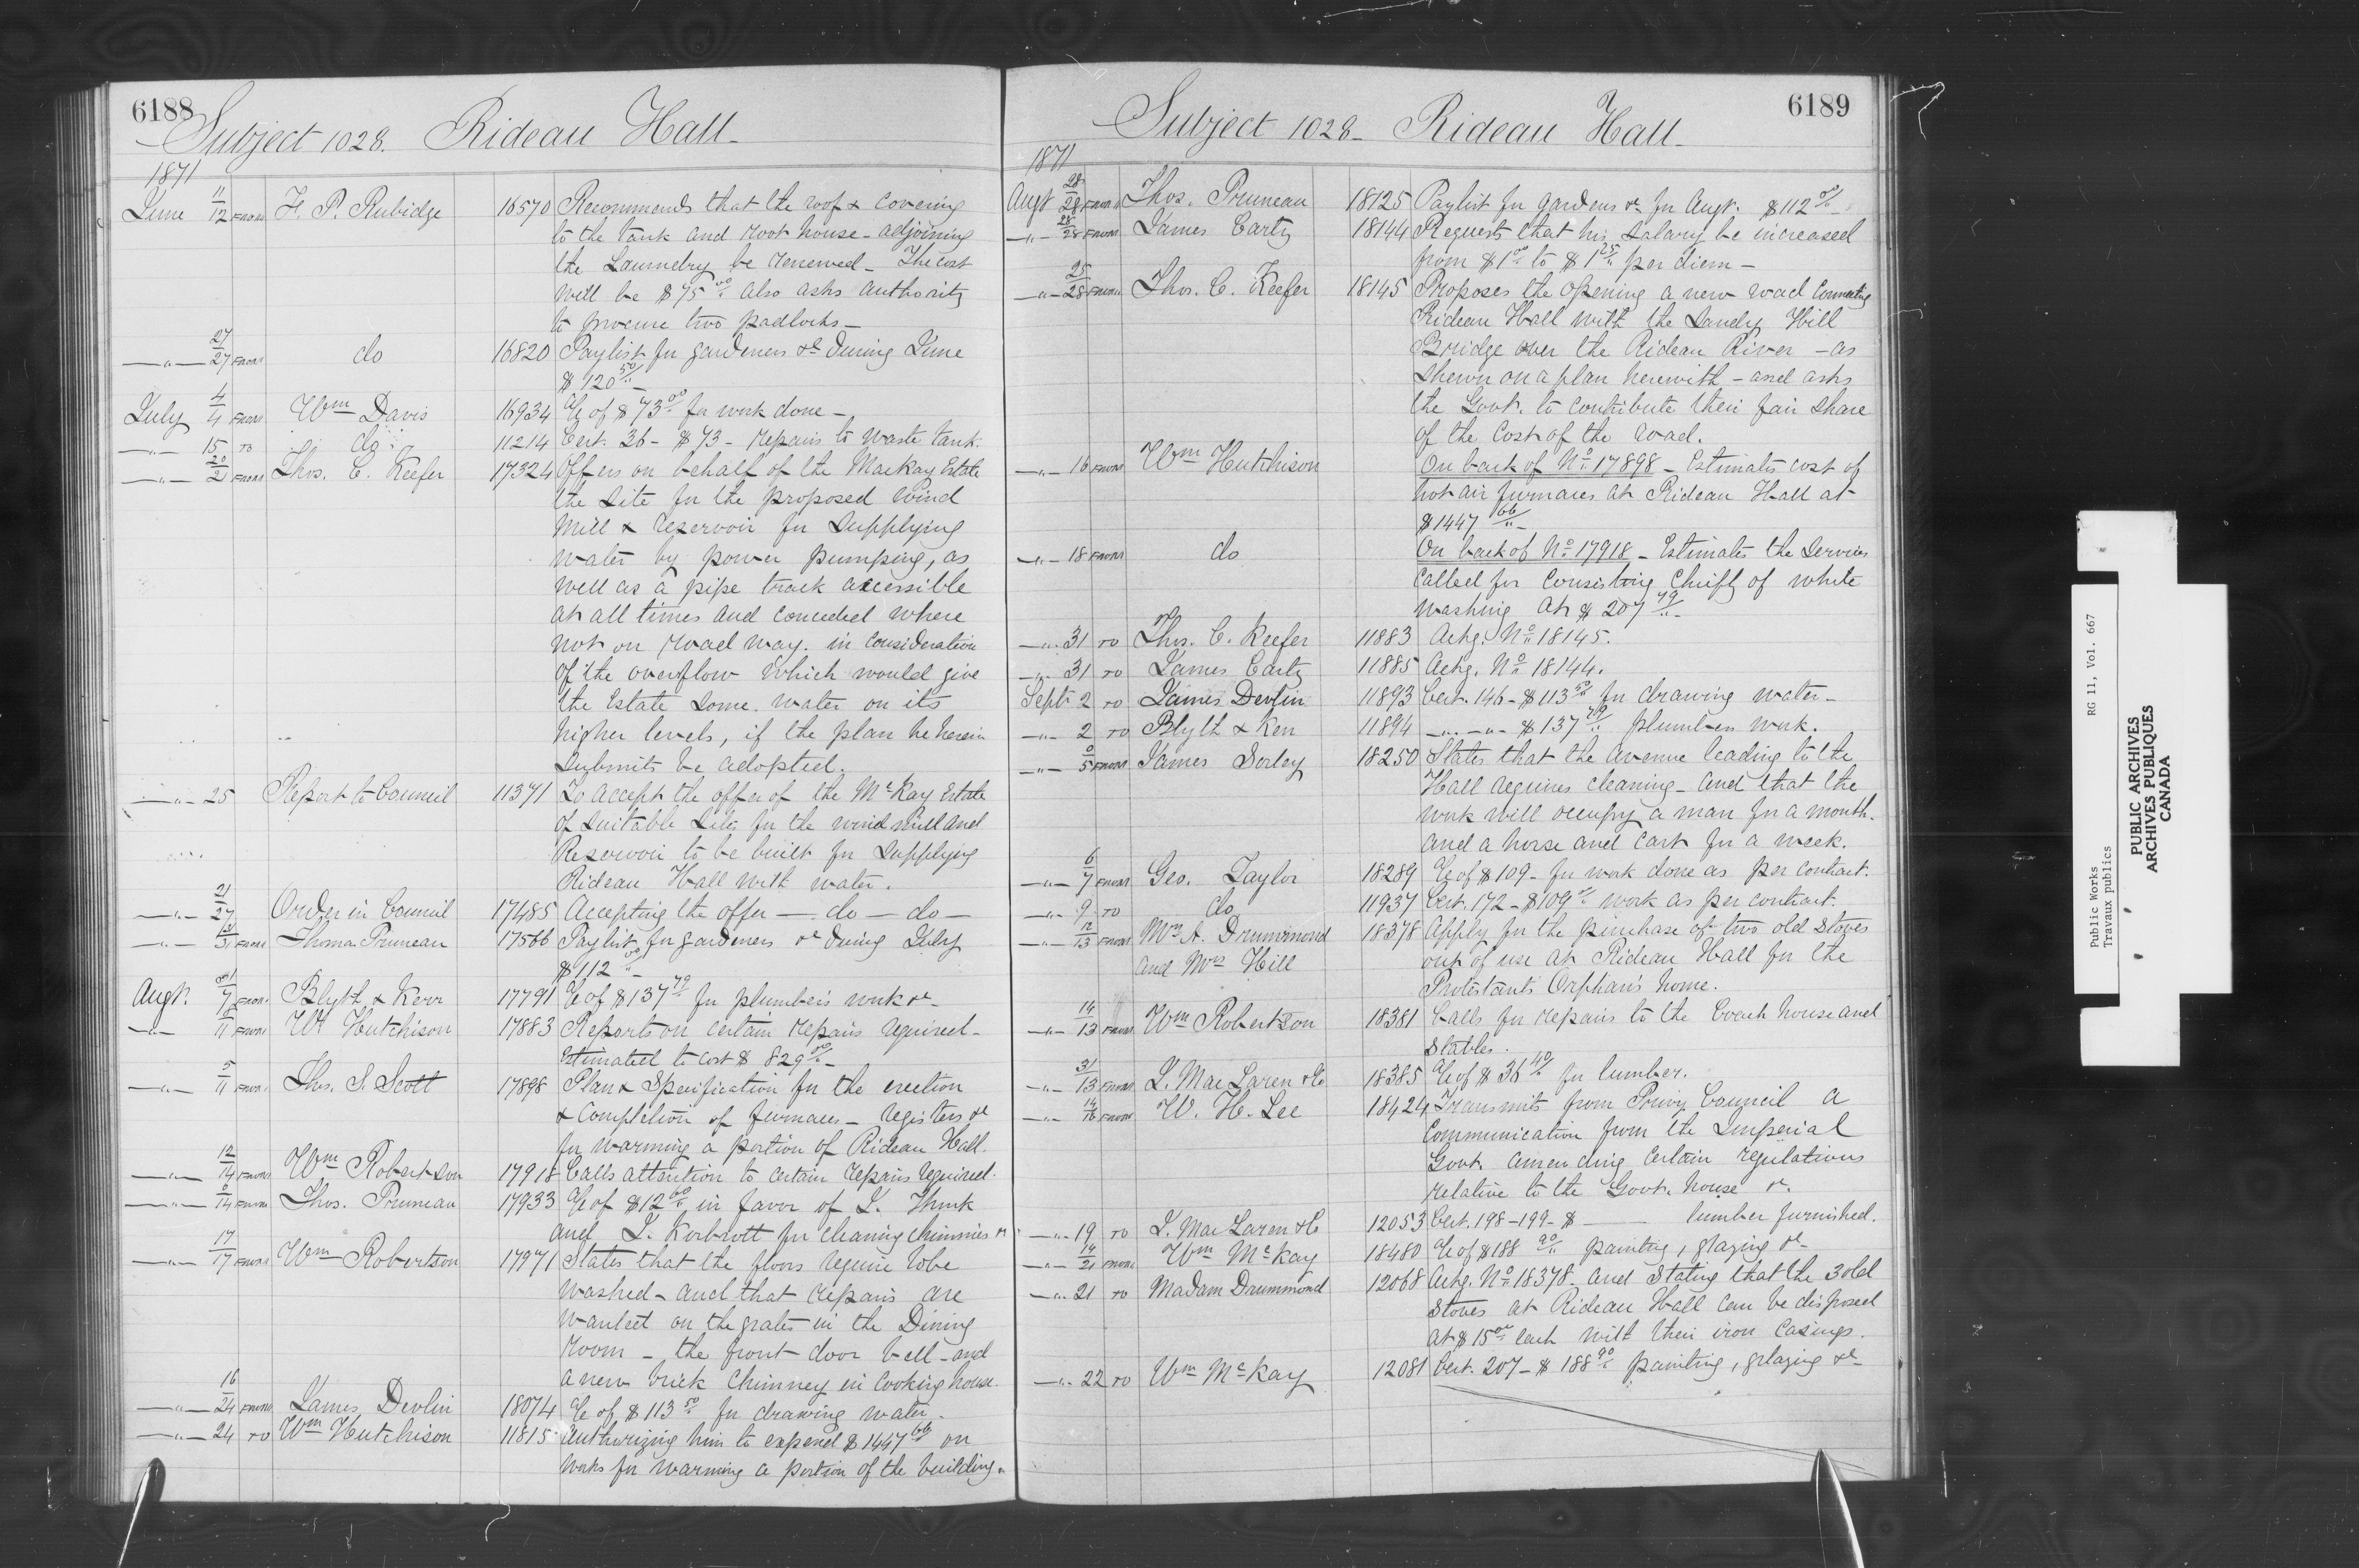 6188
Subject 1028. Rideau Hall
1871
June 11/12 FROM F. P. Rubidge 16570 Recommends that the roof & covering
to the tank and root house - adjoining
the Laundry be renewed - The cost
will be $75.00 also asks authority
to procure two padlocks -
" 27/27 FROM do 16820 Paylist for gardeners &c during June
$120.50
July 4/4 FROM Wm Davis 16934 a/c of $73.00 for work done -
" 15 TO do 11214 Cert. 36 - $73 - repairs to waste tank.
" 20/21 FROM Thos. C. Keefer 17324 Offers on behalf of the MacKay Estate
the site for the proposed wind
mill & reservoir for supplying
water by power pumping, as
well as a pipe track accessible
at all times and conceded where
not on road way. in consideration
of the overflow which would give
the Estate some water on its
higher levels, if the plan he herein
submits be adopted.
" 25 Report to Council 11371 To accept the offer of the McKay Estate
of suitable site for the wind mill and
Reservoir to be built for supplying
Rideau Hall with water.
" 21/27 Order in Council 17485 Accepting the offer - do - do -
" 31 FROM Thomas Pruneau 17566 Paylist for gardeners &c during July
$112.00
Augt. 7 FROM Blyth & Kerr 17791 a/c of $137.79 for plumbers work &c
" 11 FROM Wm Hutchison 17883 Reports on certain repairs required -
Estimated to cost $829.00
" 5/11 FROM Thos. S. Scott 17898 Plan & Specification for the erection
& completion of furnaces - registers &c
for warming a portion of Rideau Hall.
" 12/14 FROM Wm Robertson 17918 Calls attention to certain repairs required.
" 14 FROM Thos. Pruneau 17933 a/c of $12.00 in favor of
and for cleaning chimnies
" 17/17 FROM Wm Robertson 17971 States that the floors require to be
washed - and that repairs are
wanted on the grates in the Dining
room - the front door bell - and
a new brick chimney in Cooking house.
" 16/24 FROM James Devlin 18074 a/c of $113.50 for drawing water.
" 24 TO Wm Hutchison 11815 Authorizing him to expend $1447.66 on
works for warming a portion of the building.
6189
Subject 1028 - Rideau Hall
1871
Augt 28/28 FROM Thos. Pruneau 18125 Paylist for gardens &c for Augt. $112.00
" 28/28 FROM James Carty 18144 Requests that his salary be increased
from $1.00 to $1.25 per diem -
" 25/28 FROM Thos. C. Keefer 18145 Proposes the opening a new road connecting
Rideau Hall with the Sandy Hill
Bridge over the Rideau River - as
shewn on a plan herewith - and asks
the Govt. to contribute their fair share
of the cost of the road.
" 16 FROM Wm Hutchison On back of No. 17898 - Estimates cost of
hot air furnaces at Rideau Hall at
$1447.66
" 18 FROM do On back of No. 17918 - Estimates the services
called for consisting chiefly of white
washing at $207.79
" 31 TO Thos. C. Keefer 11883 Ackg. No. 18145.
" 31 TO James Carty 11885 Ackg. No. 18144.
Sept. 2 TO James Devlin 11893 Cert. 146 - $113.50 for drawing water -
" 2 TO Blyth & Kerr 11894 " " $137.79 plumbers work.
" 5 FROM James Sorley 18250 States that the Avenue leading to the
Hall requires cleaning - and that the
work will occupy a man for a month.
and a horse and cart for a week.
" 6/7 FROM Geo. Taylor 18289 a/c of $109 - for work done as per contract.
" 9 TO do 11937 Cert. 172 - $109.00 work as per contract.
" 12/13 FROM Mrs A. Drummond 18378 Apply for the purchase of two old stoves
and Mrs Hill out of use at Rideau Hall for the
Protestants Orphan's home.
" 13 FROM Wm Robertson 18381 Calls for repairs to the Coach house and
Stables.
" 31/13 FROM J. MacLaren & Co 18385 a/c of $36.40 for lumber.
" 14/16 FROM W. H. Lee 18424 Transmits from Privy Council a
communication from the Imperial
Govt. amending certain regulations
relative to the Govt. house &c.
" 19 TO J. MacLaren & Co 12053 Cert. 198-199 - $ — lumber furnished.
" 19/21 FROM Wm McKay 18480 a/c of $188.90 painting, glazing &c
" 21 TO Madam Drummond 12068 Ackg. No. 18378 - and stating that the 3 old
stoves at Rideau Hall can be disposed
at $15.00 each with their iron casings.
" 22 TO Wm McKay 12081 Cert. 207 - $188.90 painting, glazing &c
Public Works RG 11, Vol. 667
Travaux publics
PUBLIC ARCHIVES
ARCHIVES PUBLIQUES
CANADA